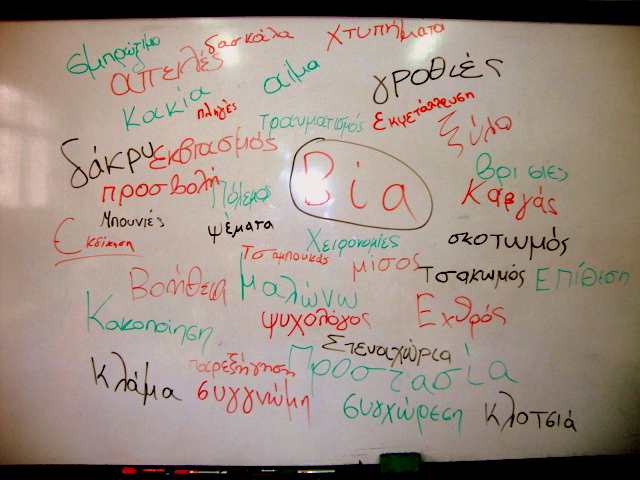 σπρώξιμο δασκάλα χτυπήματα
απειλές αίμα γροθιές
κακία πληγές τραυματισμός Εκμετάλλευση ξύλο
δάκρυ εκβιασμός Βία Βρισιές
προσβολή Πόλεμος Καβγάς
Μπουνιές ψέματα Χειρονομίες σκοτωμός
Εκδίκηση Τσαμπουκάς μίσος Τσακωμός Επίθεση
Βοήθεια μαλώνω
Κακοποίηση ψυχολόγος Εχθρός
Στεναχώρια
Κλάμα παρεξήγηση Προστασία
συγγνώμη συγχώρεση κλοτσιά